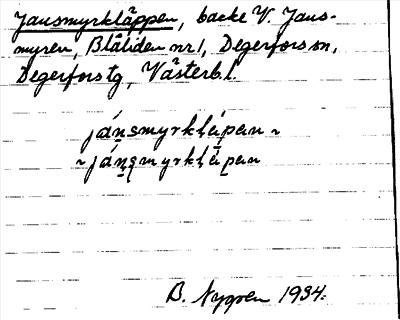 Jansmyrkläppen, backe V. Jans-
myren, Blåliden nr 1, Degerfors sn,
Degerfors tg, Västerb. l.
jánsmyrkḷäpen ~
~ jáṇsmyrkḷäpen
B. Nygren 1934.